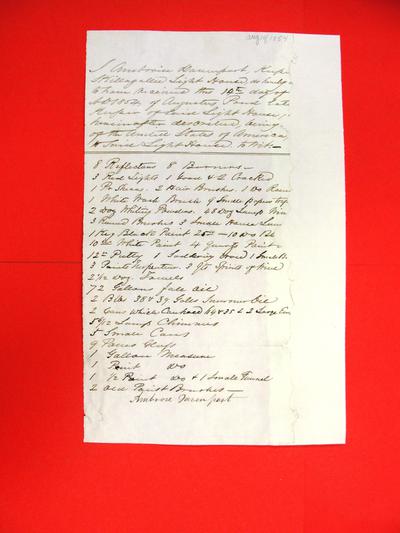 Aug 10 1854
I Ambroise Davenport, Keeper
Skillagallee Light House, do hereby
to have received this 10th day of
AD 1854, of Augustus Pond late
Keeper of said Light House,
hereinafter described, being
of the United States of America
Said Light House to Wit—
8 Reflectors 8 Burners—
3 Red Lights 1 Good & 2 Cracked
1 Pr Shears. 2 Hair Brushes 1 Do
1 White Wash Brush 9 Small
2 Doz Whiting Powder. 48 Doz Lamp
3 Round Brushes 3 Small House
1 Keg Black Paint 25lb — 10 Do
10 lb White Paint 4 Quarts Paint
12lb Putty 1 Soldering 1 Small
3 Paint 3 Qts Spirits of Wine
2 1/12 Doz. Towels
72 Gallons fall Oil
2 Bbls 38 & 39 Galls Summer Oil
2 Cans which 44 & 35 & 2 Large
5 9/12 Lamp Chimnies
5 Small Cans
9 Panes Glass
1 Gallon Measure
1 Pint do
1 1/2 Pint do & 1 Small Funnel
2 Old Paint Brushes—
Ambroise Davenport